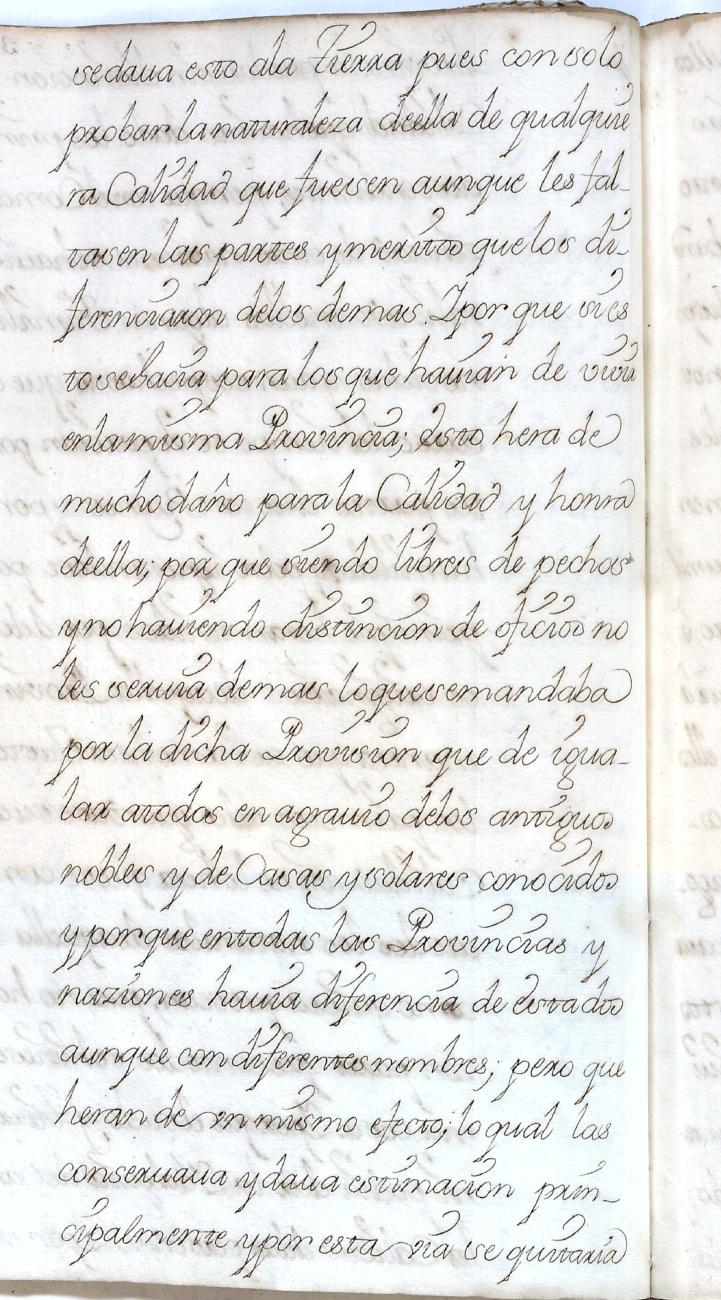 sedaua esto ala Tierra pues con solo
probar la naturaleza deella de qualquie
ra Calidad que fuesen aunque les fal-
tasen las partes y meritos que los di-
ferenciaron delos demas. Y por que si es
to se hacia para los que hauian de viuir
enla misma Prouincia; esto hera de
mucho daño para la Calidad y honra
deella; por que siendo libres de pechos
y no hauiendo distincion de oficios no
les seruia demas lo que se mandaba
por la dicha Prouision que de igua-
lar atodos en agrauio delos antiguos
nobles y de Casas y solares conocidos
y porque entodas las Prouincias y
naziones hauia diferencia de estados
aunque con diferentes nombres; pero que
heran de vn mismo efecto; lo qual las
conseruaua y daua estimacion prin-
cipalmente y por esta via se quitaria